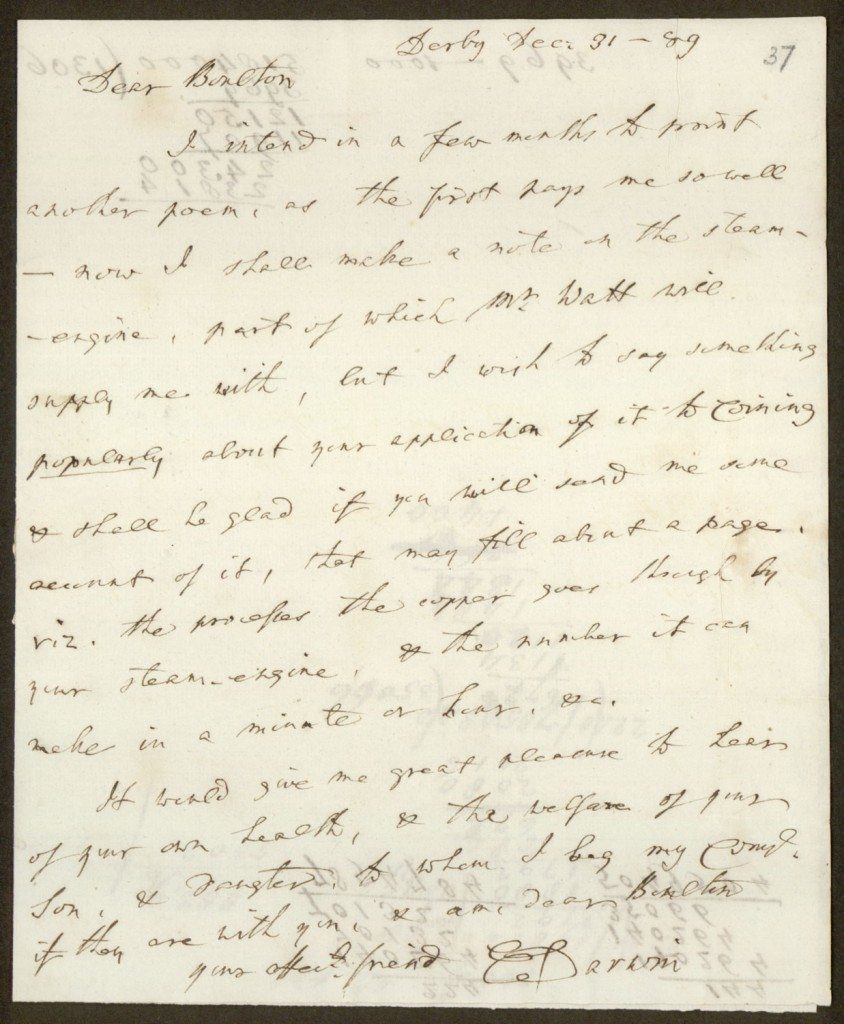 Derby Dec: 31 - 89
37
Dear Boulton
I intend in a few months to print
another poem, as the first pays me so well
— now I shall make a note on the steam-
-engine, part of which Mr. Watt will
supply me with, but I wish to say something
popularly about your application of it to Coining
& shall be glad if you will send me some
account of it, that may fill about a page.
viz. the processes the copper goes through by
your steam-engine, & the number it can
make in a minute or hour. &c.
It would give me great pleasure to hear
of your own health, & the welfare of your
Son, & Daugter, to whom I beg my Compl.
if they are with you, & am, dear Boulton
your affect. friend E Darwin